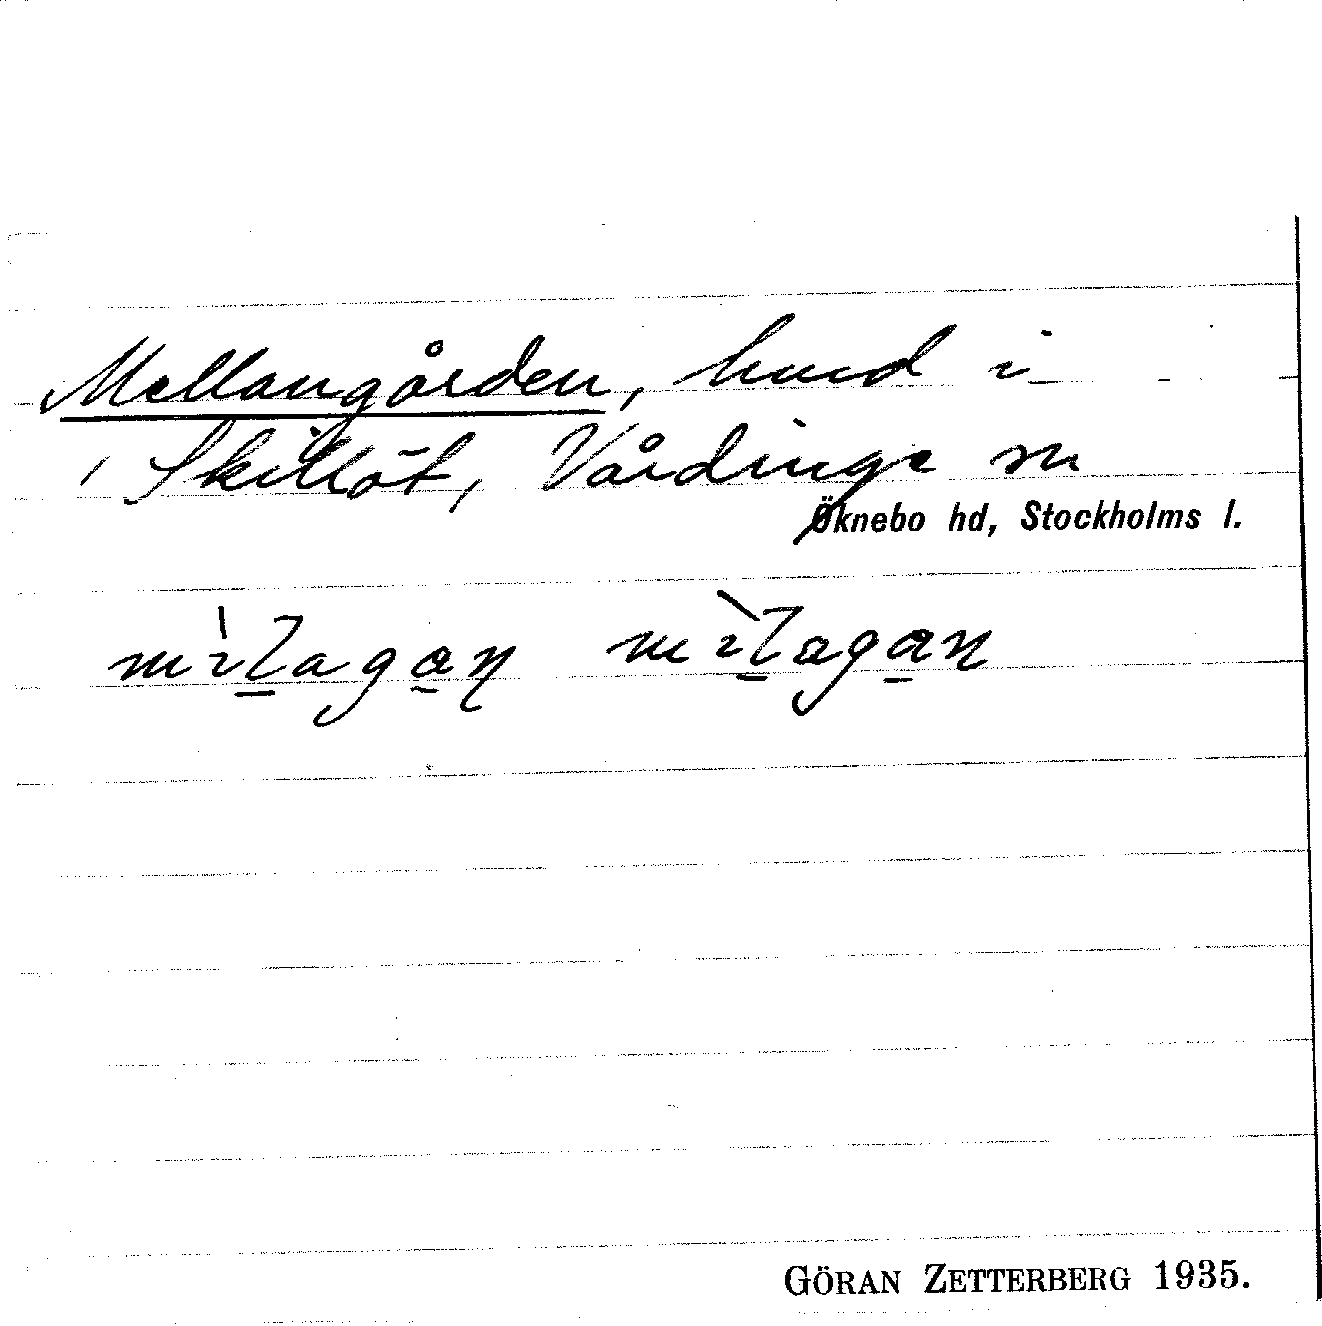 Mellangården, hmd i
, Skillöt, Vårdinge sn
Öknebo hd, Stockholms l.
GÖRAN ZETTERBERG 1935.